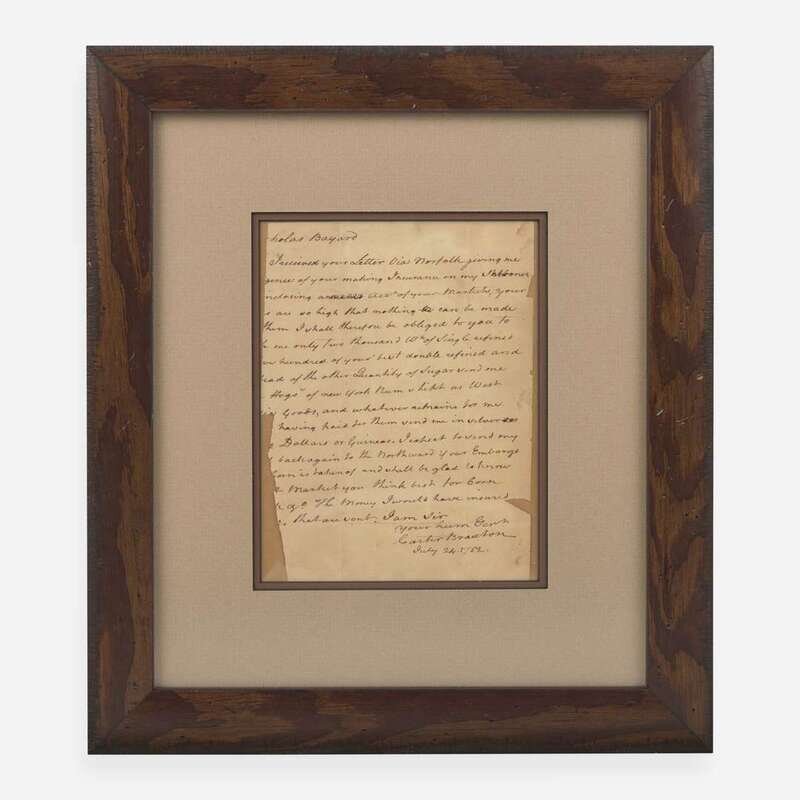 holas Bayard
I received your Letter Via Norfolk giving me
gence of your making Insurance on my Schooner
inclosing Acct of your Markets, your
s are so high that nothing can be made
them I shall therefore be obliged to you to
me only two thousand Wt of Single refined
hundred of your best double refined and
ead of the other Quantity of Sugar send me
Hogs of new York Rum & Debit as West
Goods, and whatever remains for me
having paid for them send me in silver
Dollars or Guineas. I expect to send my
back again to the Northward if our Embargo
Corn is taken of and shall be glad to know
Market you think best for Corn
The Money I would have insured
that are sent. I am Sir
Your hum Servt
Carter Braxton
July 24. 1762.